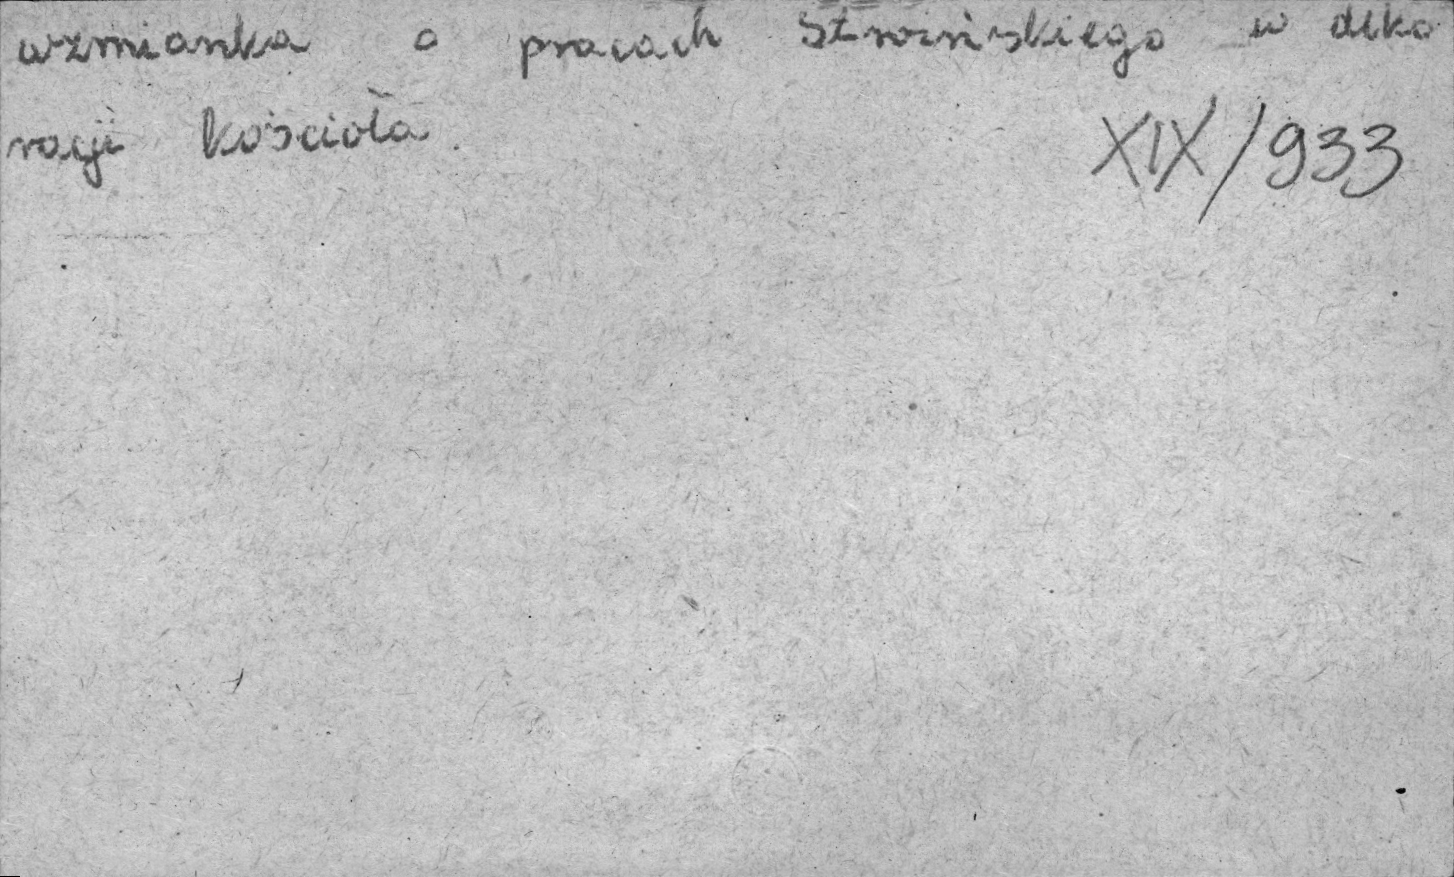 wzmianka o pracach Stroińskiego w deko
racji kościoła.
XIX/933